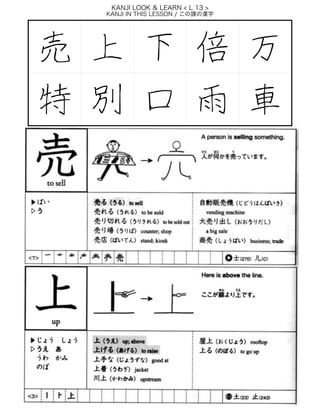 KANJI LOOK & LEARN < L 13 >
KANJI IN THIS LESSON / この課の漢字
売 上 下 倍 万
特 別 口 雨 車
A person is selling something.
人が何かを売っています。
売
to sell
▶ばい
▷う
売る（うる） to sell
売れる（うれる） to be sold
売り切れる（うりきれる） to be sold out
売り場（うりば） counter; shop
売店（ばいてん） stand; kiosk
自動販売機（じどうはんばいき）
vending machine
大売り出し（おおうりだし）
a big sale
商売（しょうばい） business; trade
<7>
売
士(270) 儿(C)
Here is above the line.
ここが線より上です。
上
up
▶じょう しょう
▷うえ あ
うわ かみ
のぼ
上（うえ） up; above
上げる（あげる） to raise
上手な（じょうずな） good at
上着（うわぎ） jacket
川上（かわかみ） upstream
屋上（おくじょう） rooftop
上る（のぼる） to go up
<3>
上
土(23) 止(243)